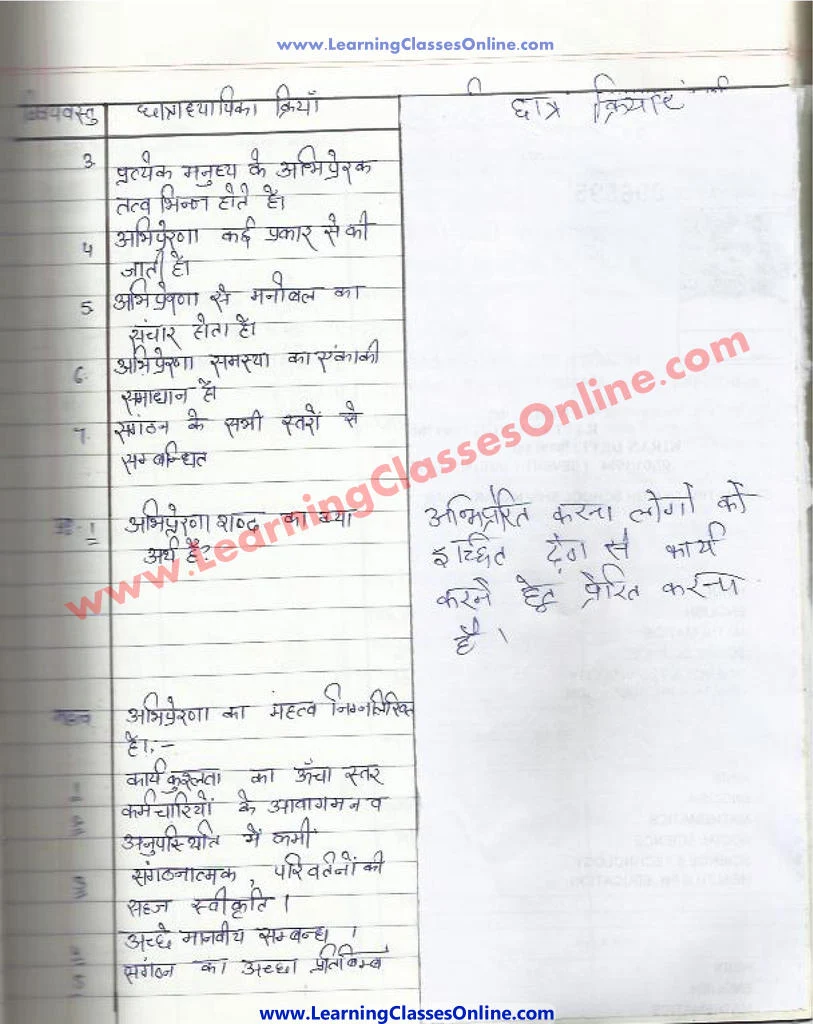 www.LearningClassesOnline.com
विषयवस्तु छात्राध्यापिका क्रियाँ छात्र क्रियाएं
3. प्रत्येक मनुष्य के अभिप्रेरक
तत्व भिन्न होते है।
4 अभिप्रेरणा कई प्रकार से की
जाती है।
5. अभिप्रेरणा से मनोबल का
संचार होता है।
6. अभिप्रेरणा समस्या का एंकाकी
समाधान है।
7. संगठन के सभी स्तरों से
सम्बन्धित
www.LearningClassesOnline.com
प्र-1 अभिप्रेरणा शब्द का क्या
अर्थ है?
अभिप्रेरित करना लोगों को
इच्छित ढ़ंग से कार्य
करने हेतु प्रेरित करना
है।
महत्व अभिप्रेरणा का महत्व निम्नलिखित
है।:-
कार्य कुशलता का ऊँचा स्तर
कर्मचारियों के आवागमन व
अनुपस्थिति में कमी
संगठनात्मक, परिवर्तनों की
सहज स्वीकृति।
अच्छे मानवीय सम्बन्ध।
संगठन का अच्छा प्रतिबिम्ब
www.LearningClassesOnline.com